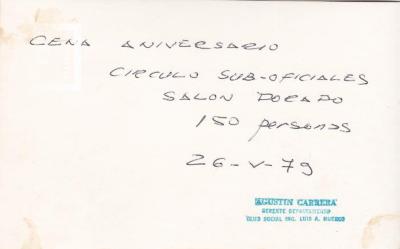 CENA ANIVERSARIO
CIRCULO SUB-OFICIALES
SALON DORADO
150 personas
26-V-79
AGUSTIN CARRERA
GERENTE DEPARTAMENTO
CLUB SOCIAL ING. LUIS A. HUERGO